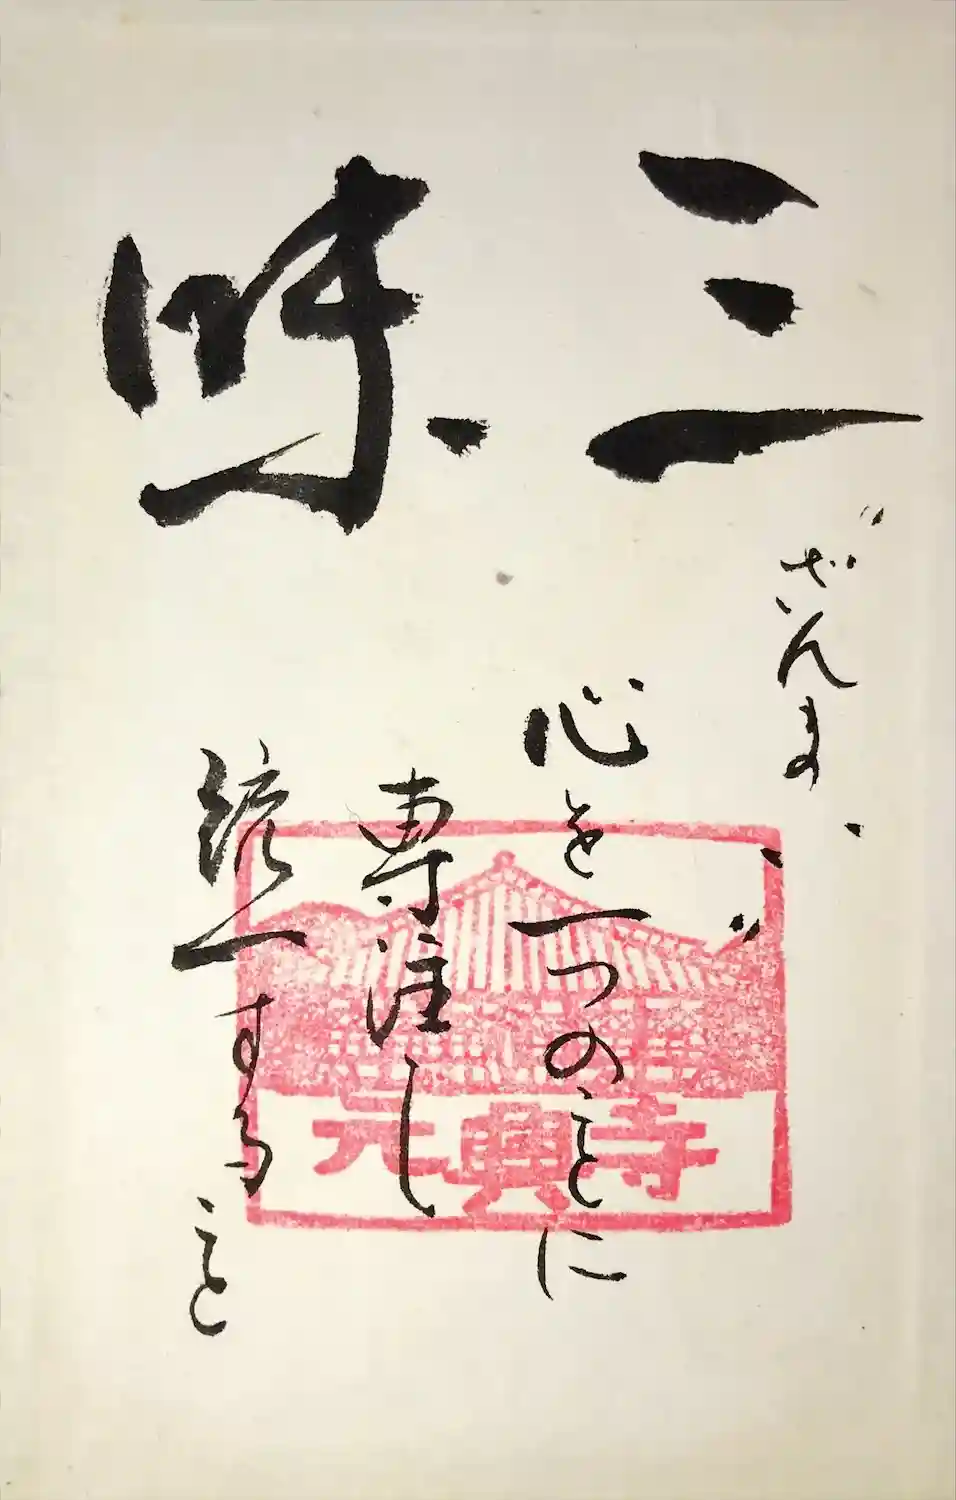 三昧
"ざんまい"
心を一つのことに
専注し
統一すること
元興寺